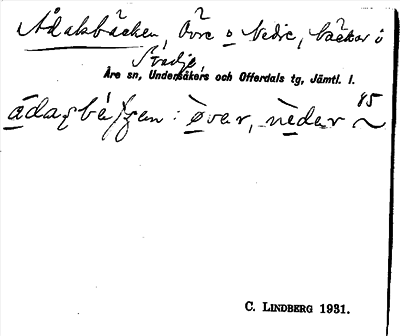 Ådakbäcken, Övre o Nedre, bäckar i
Stadje,
Åre sn, Undersåkers och Offerdals tg, Jämtl. l.
: øver, neder ~ 85
C. LINDBERG 1931.